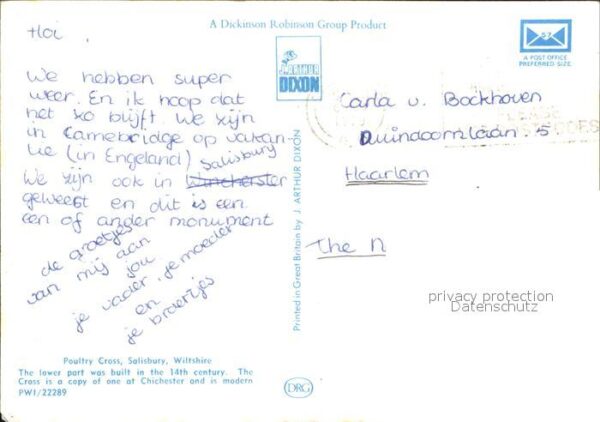 A Dickinson Robinson Group Product
Hoi
We hebben super
weer. En ik hoop dat
het zo blijft. We zijn
in Camebridge op vakan-
tie (in Engeland) Salisbury
We zijn ook in Wincherster
geweest en dit is een
een of ander monument
de groetjes
van mij aan
jou
je vader, je moeder
en
je broertjes
Poultry Cross, Salisbury, Wiltshire
The lower part was built in the 14th century. The
Cross is a copy of one at Chichester and is modern
PW1/22289
J. ARTHUR
DIXON
Printed in Great Britain by J. ARTHUR DIXON
DRG
A POST OFFICE
PREFERRED SIZE
Carla v. Bockhoven
Duindoornlaan 5
Haarlem
The N
privacy protection
Datenschutz